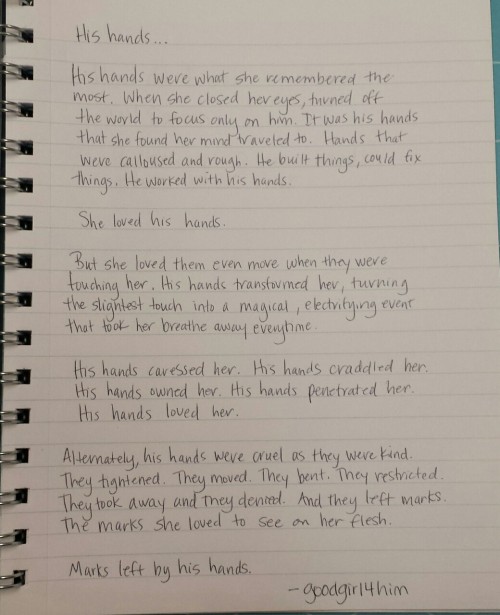 His hands...
His hands were what she remembered the
most. When she closed her eyes, turned off
the world to focus only on him. It was his hands
that she found her mind traveled to. Hands that
were calloused and rough. He built things, could fix
things. He worked with his hands.
She loved his hands.
But she loved them even more when they were
touching her. His hands transformed her, turning
the slightest touch into a magical, electrifying event
that took her breathe away everytime.
His hands caressed her. His hands craddled her.
His hands owned her. His hands penetrated her.
His hands loved her.
Alternately, his hands were cruel as they were kind.
They tightened. They moved. They bent. They restricted.
They took away and they denied. And they left marks.
The marks she loved to see on her flesh.
Marks left by his hands.
- goodgirl4him